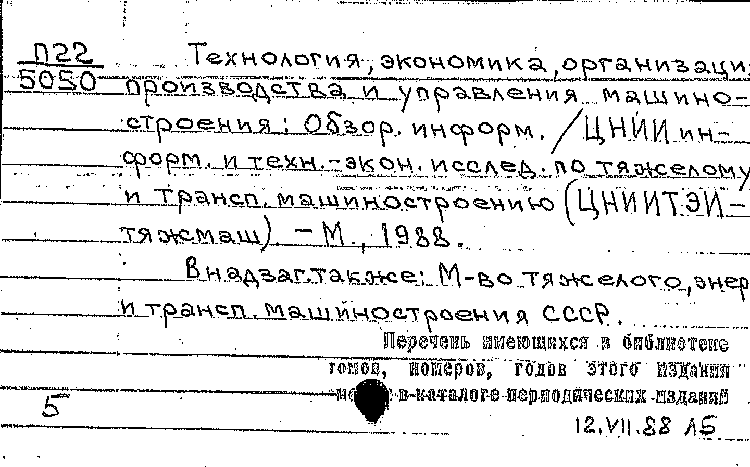 П22
5050
Технология, экономика, организаци
производства и управления машино-
строения: Обзор. информ. / ЦНИИ ин-
форм. и техн.-экон. исслед. по тяжелому
и трансп. машиностроению (ЦНИИТЭИ-
тяжмаш) – М., 1988.
В надзаг. также: М-во тяжелого, энер
и трансп. машиностроения СССР.
Перечень имеющихся в библиотеке
томов, номеров, годов этого издания
в каталоге периодических изданий
5
12.VII.88 ЛБ